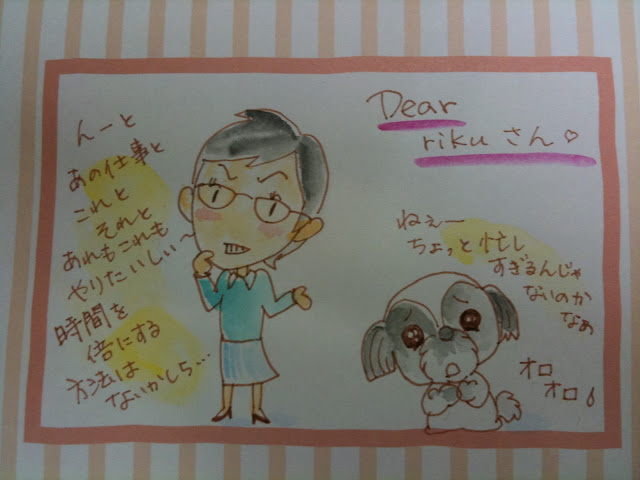 Dear
riku さん♡
んーと
あの仕事と
これと
それと
あれもこれも
やりたいしぃ〜
時間を
倍にする
方法は
ないかしら…
ねぇー
ちょっと忙し
すぎるんじゃ
ないのか
なぁ
オロ
オロ